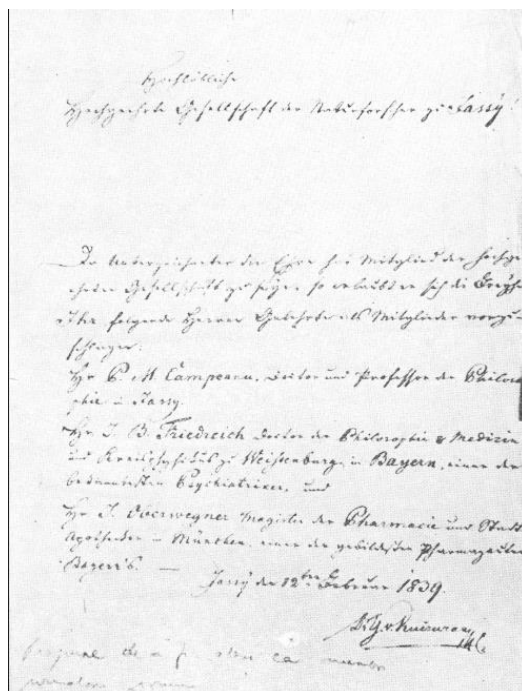 Hochlöbliche
Hochgeehrte Gesellschaft der Naturforscher zu Jassy!
Da Unterzeichneter die Ehre hat Mitglied der hochge-
ehrten Gesellschaft zu seyn so erlaubt er sich die
folgende Herren Gelehrte als Mitglieder vorzu-
schlagen:
Hr P. M. Câmpeanu, Doctor und Professor der Philoso-
phie in Jassy.
Hr J. B. Friedreich Doctor der Philosophie & Medicin
und Kreisphysikus zu Weissenburg in Bayern, einer der
Psychiatriker, und
Hr J. Oberwegner Magister der Pharmacie und Stadt
Apotheker in München, einer der gebildesten Pharmazeuten
Bayern's. —
Jassy den 12ten Februar 1839.